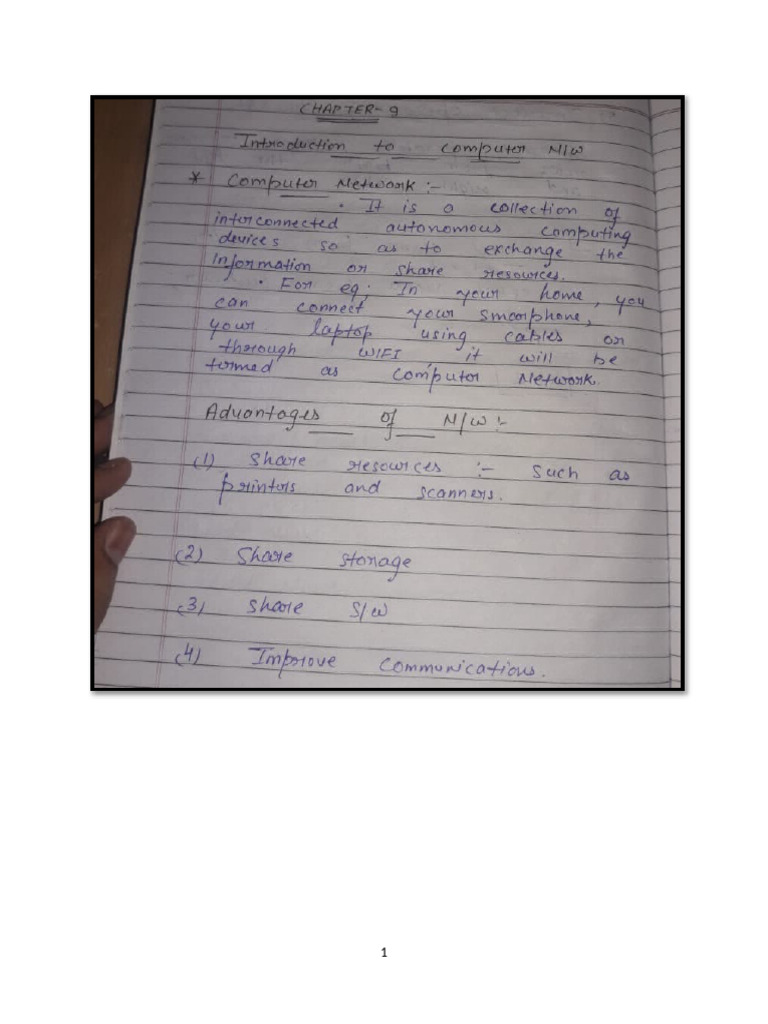 CHAPTER-9
Introduction to computer N/W
* Computer Network :-
• It is a collection of
interconnected autonomous computing
devices so as to exchange the
Information or share resources.
• For eg: In your home, you
can connect your smarphone,
your laptop using cables or
through WIFI, it will be
termed as computer Network.
Advantages of N/W :-
(1) Share resources :- Such as
printors and scanners.
(2) Share storage
(3) Share S/W
(4) Improve Communications.
1